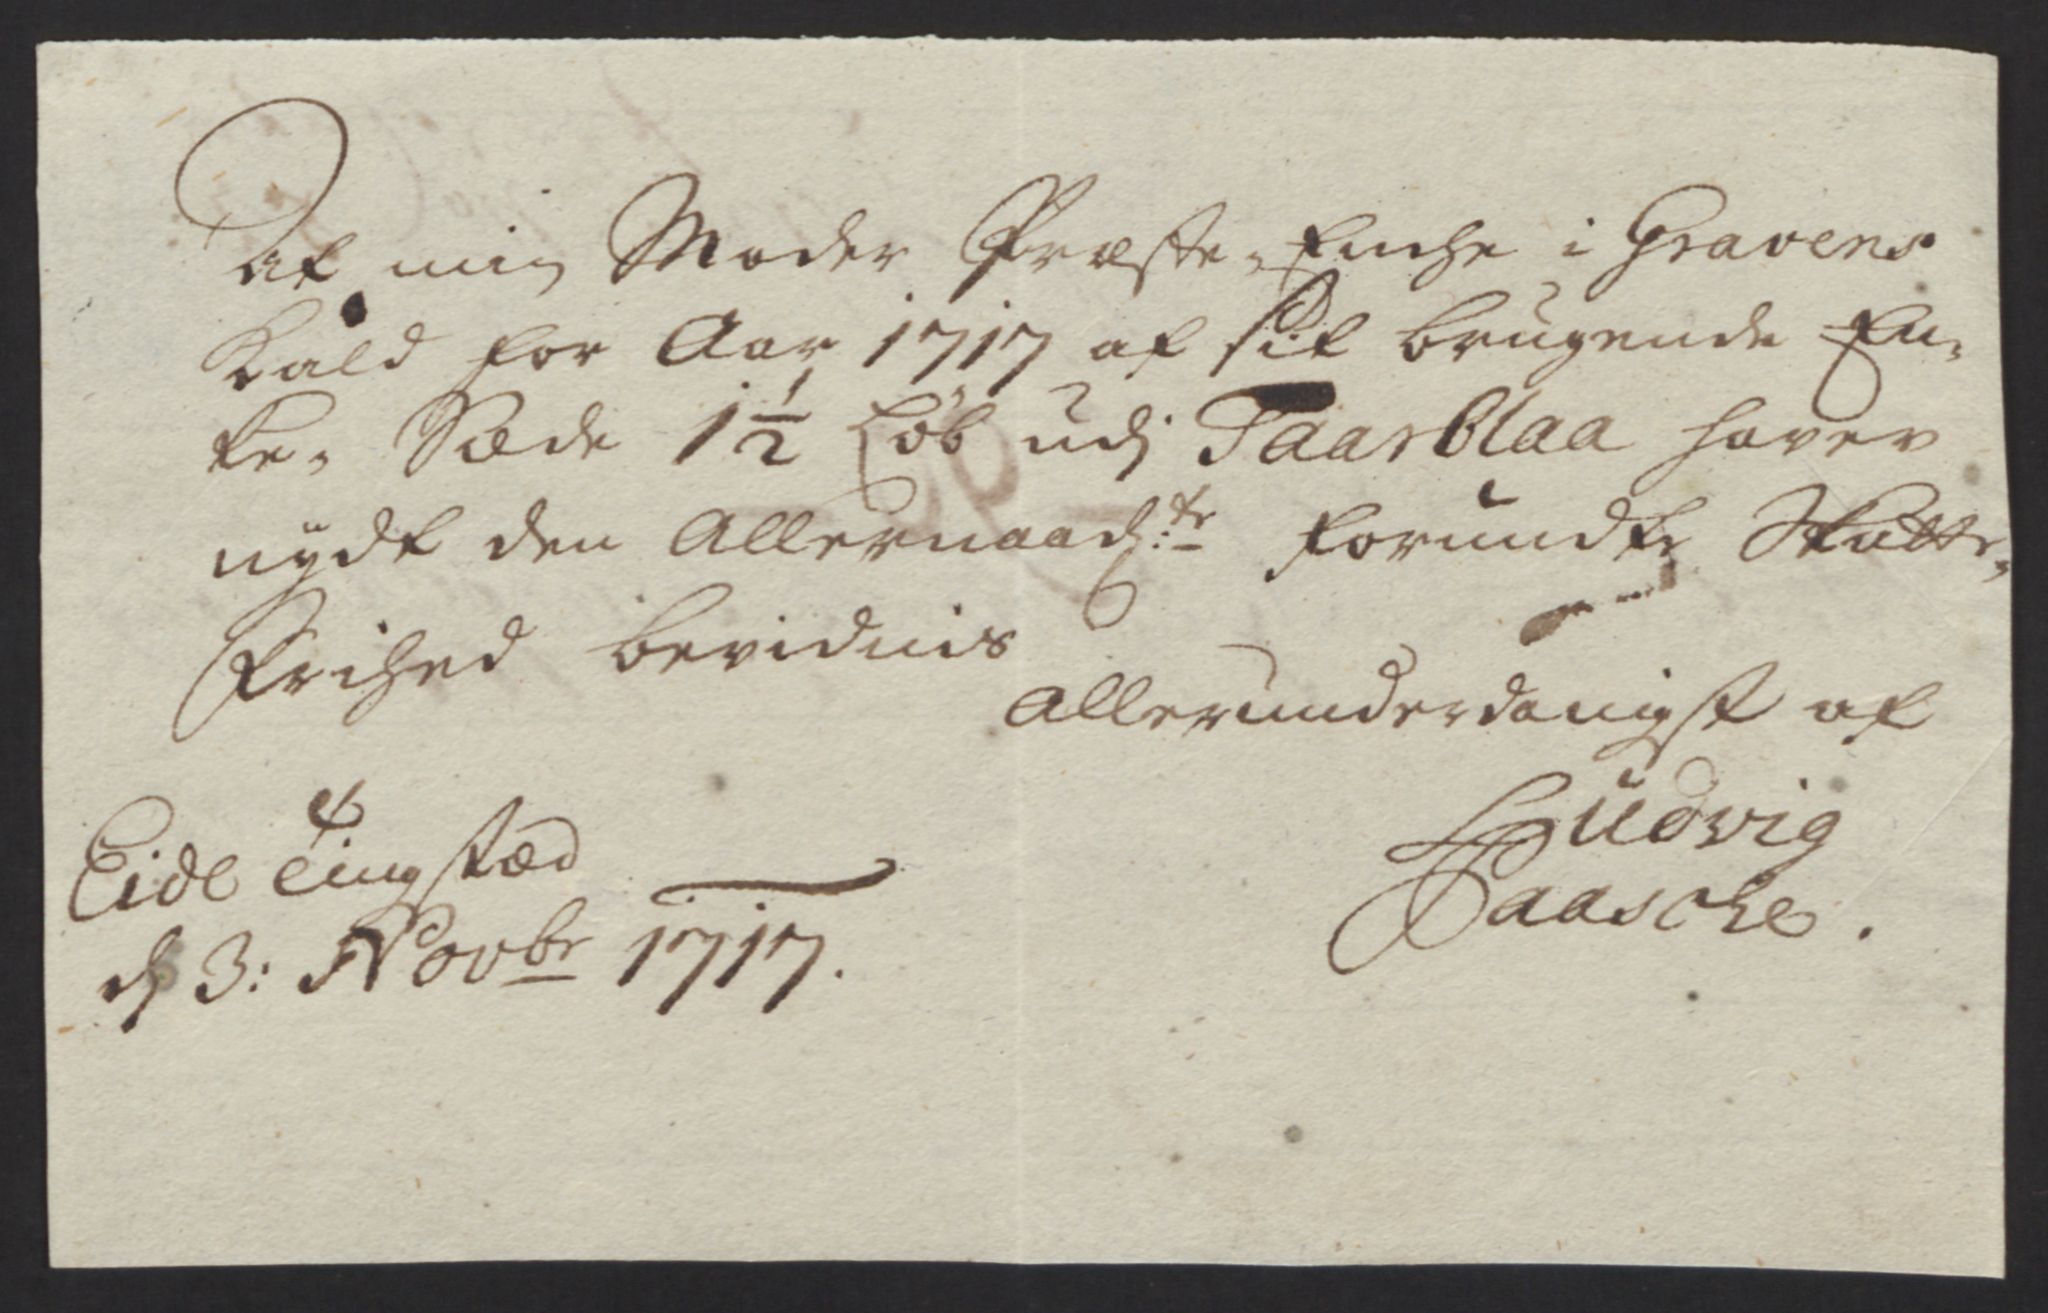 At min Moder Præste-Enche i Gravens
Kald for Aar 1717 af sit brugende En-
ke-Sæde 1 1/2 Løb udj TaarBlaa haver
nydt den Allernaad:te forundte Skatte-
Frihed bevidnis
Allerunderdanigst af
Ludvig
Paasche.
Eide Tingstæd
d 3: Novbr 1717.